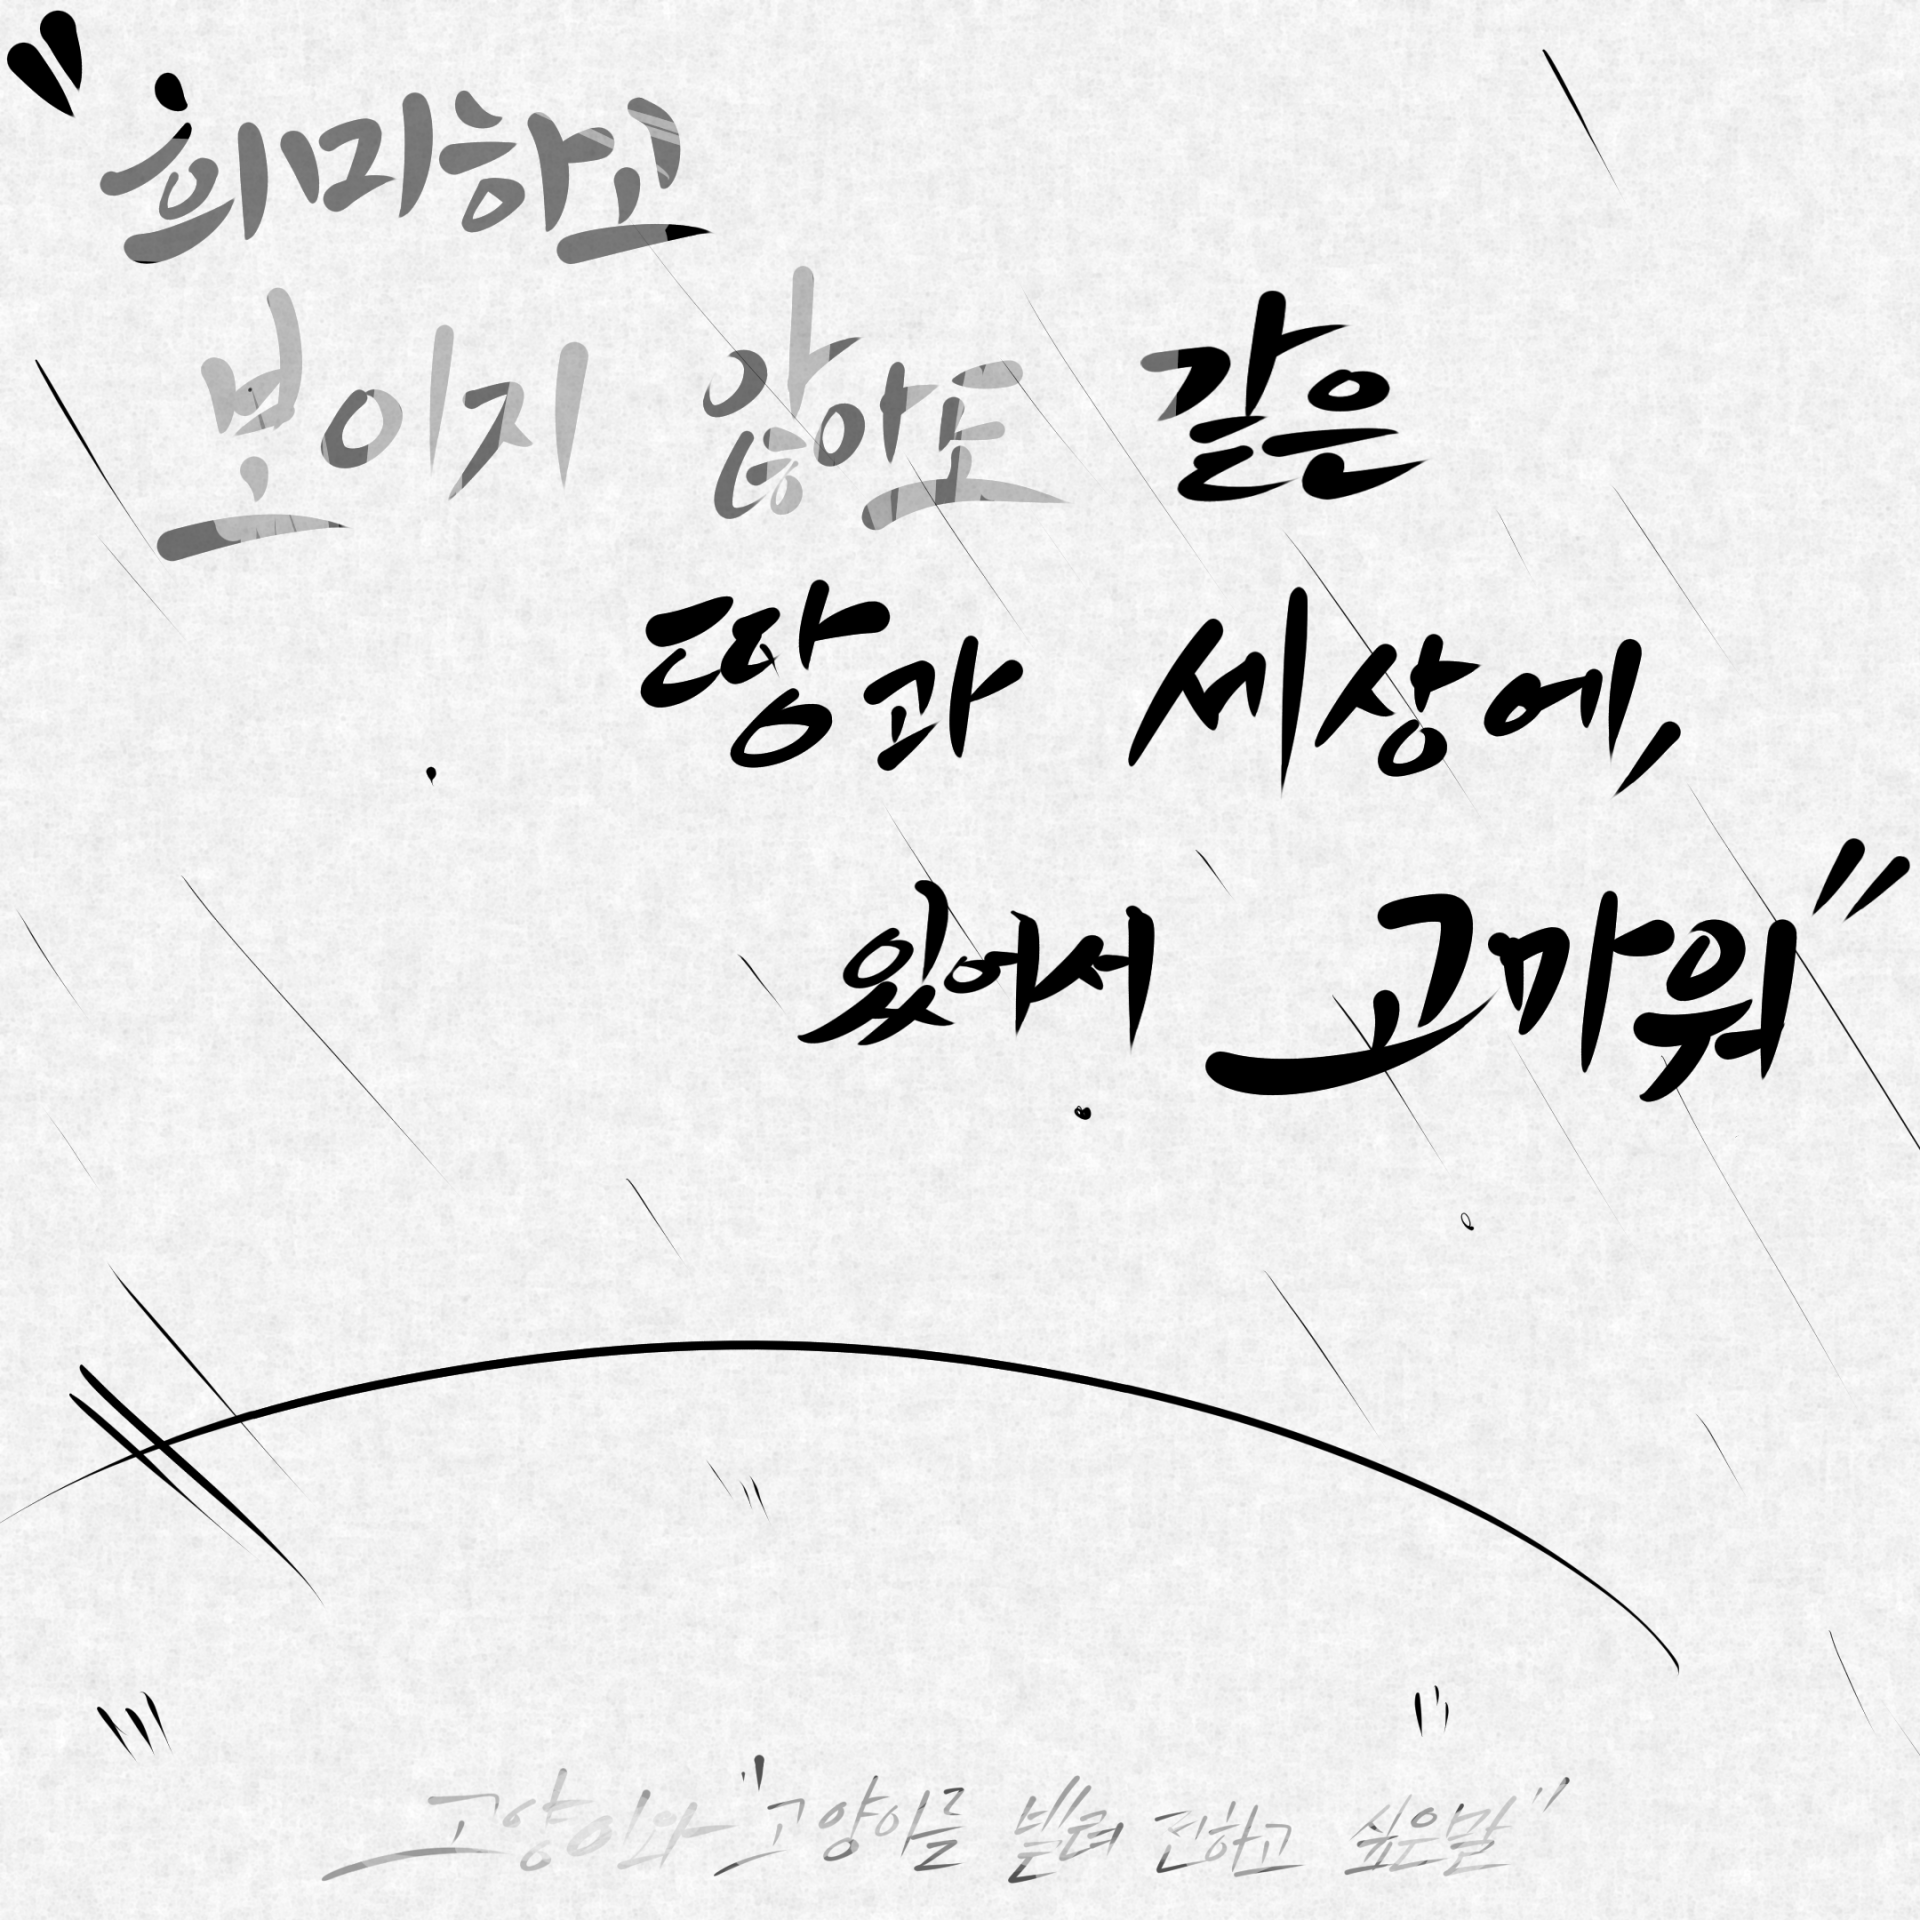 "희미하고
보이지 않아도 같은
땅과 세상에,
있어서 고마워"
고양이와 "고양이를 빌려 전하고 싶은말"